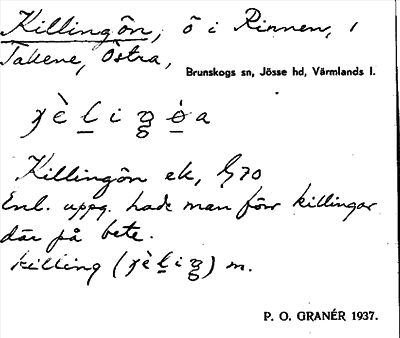 Killingön, ö i Rinnen, i
Takene, Östra,
Brunskogs sn, Jösse hd, Värmlands l.
Killingön ek, G70
Enl. uppg. hade man förr killingar
där på bete.
killing m.
P. O. GRANÉR 1937.